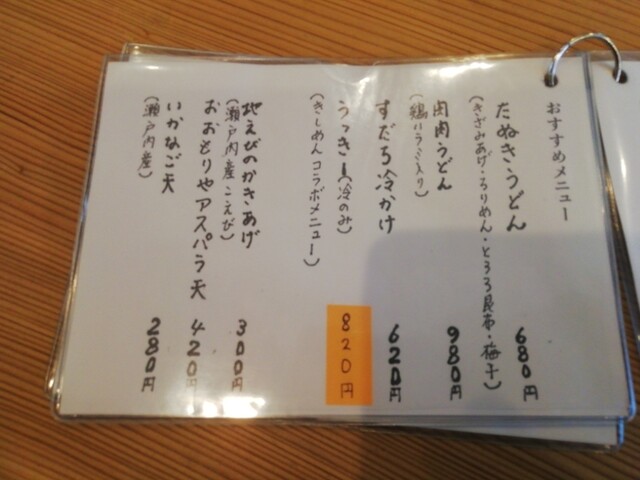 おすすめメニュー
たぬきうどん 680円
(きざみあげ・ちりめん・とろろ昆布・梅干)
肉肉うどん 980円
すだち冷かけ 620円
(冷のみ) 820円
(きしめんコラボメニュー)
地えびのかきあげ 300円
(瀬戸内産こえび)
おおもりやアスパラ天 420円
いかなご天 280円
(瀬戸内産)